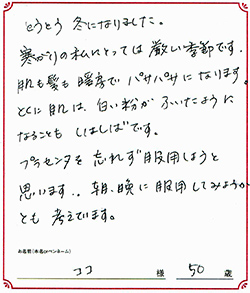 とうとう 冬になりました。
寒がりの私にとっては 厳しい季節です.
肌も髪も 暖房で パサパサになります。
とくに 肌は、白い粉が ふいたように
なることも しばしばです。
プラセンタを 忘れず 服用しようと
思います.. 朝、晩に 服用してみようか
とも 考えています。
お名前(本名orペンネーム)
ココ 様 50 歳